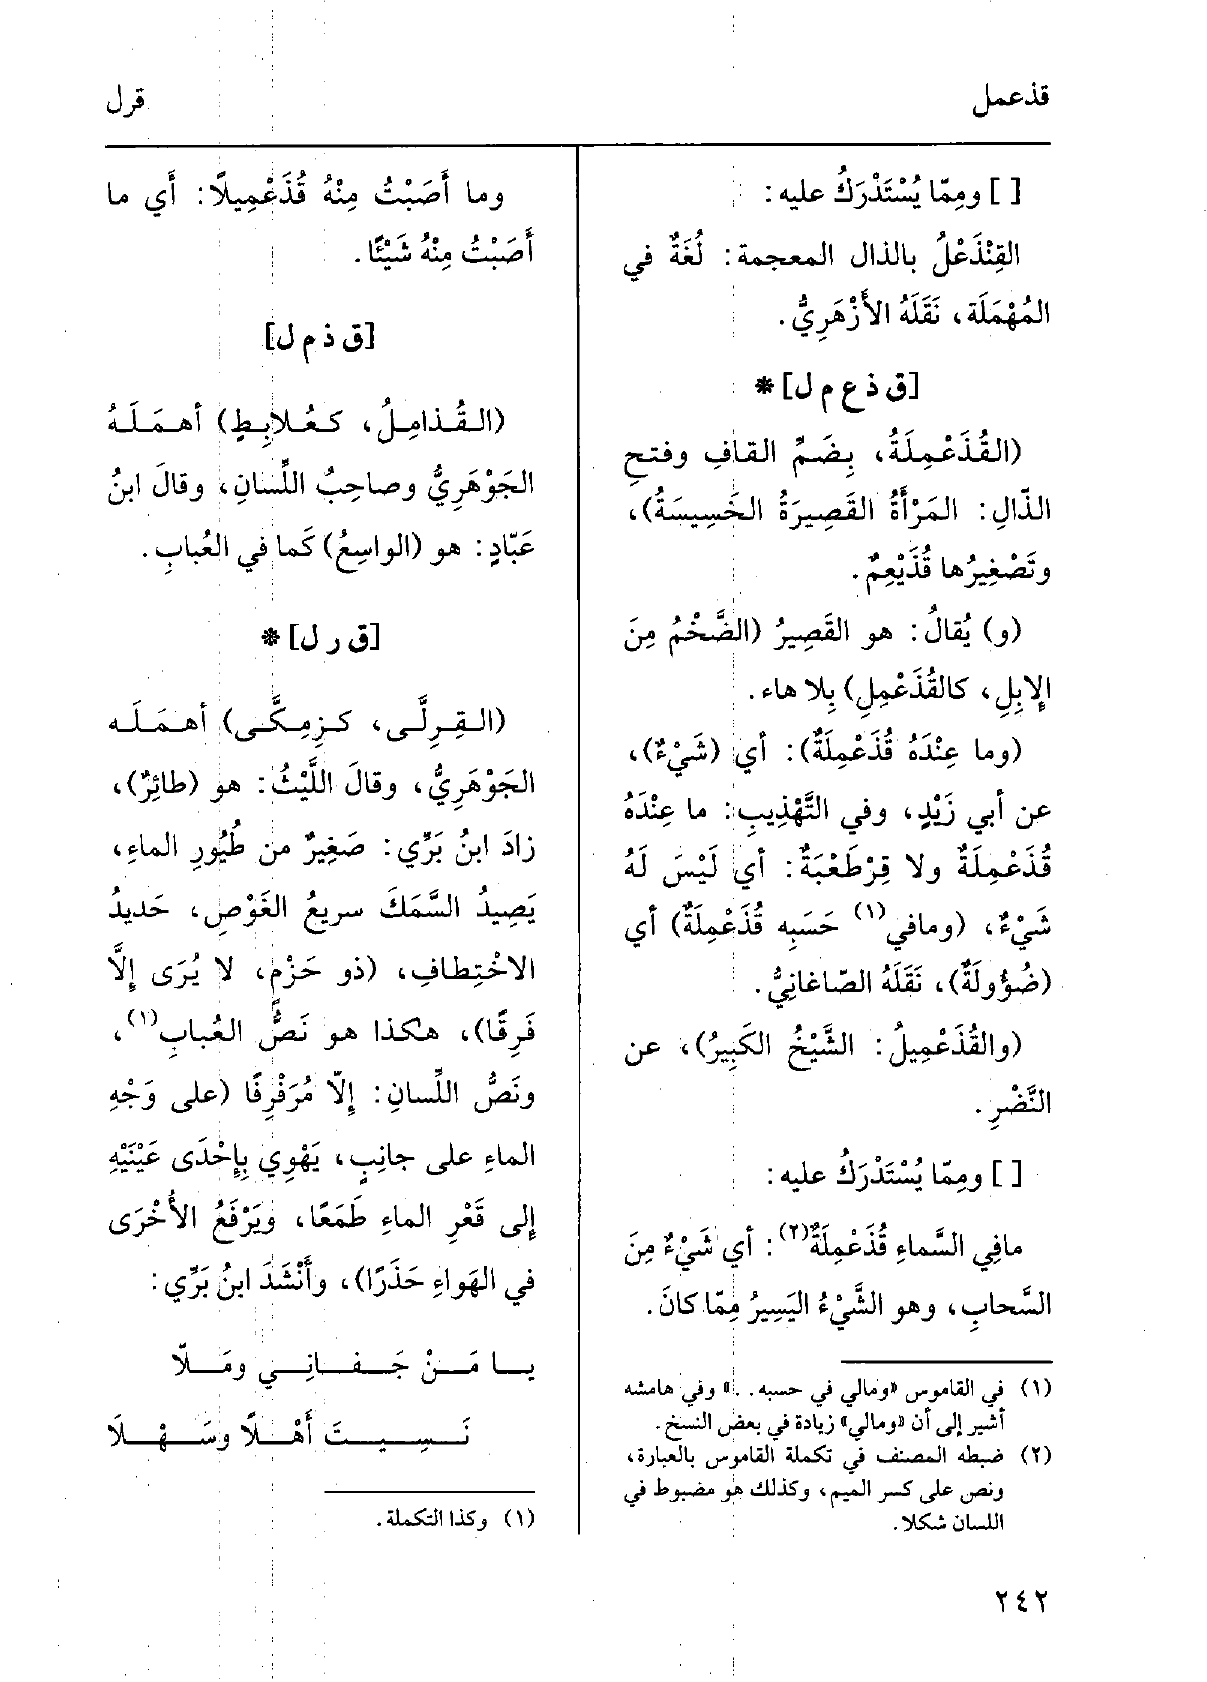 قذعمل
قرل
[ ] ومِمّا يُسْتَدْرَكُ عليه:
القِنْذَعْلُ بالذال المعجمة: لُغَةٌ في
المُهْمَلَة، نَقَلَهُ الأَزْهَرِيُّ.
[ق ذ ع م ل] *
(القُذَعْمِلَةُ، بِضَمِّ القافِ وفتحِ
الذّالِ: المَرْأَةُ القَصِيرَةُ الخَسِيسَةُ)،
وتَصْغِيرُها قُذَيْعِمٌ.
(و) يُقالُ: هو القَصِيرُ (الضَّخْمُ مِنَ
الإبِلِ، كالقُذَعْمِلِ) بِلا هاء.
(وما عِنْدَهُ قُذَعْمِلَةٌ): أي (شَيْءٌ)،
عن أبي زَيْدٍ، وفي التَّهْذِيبِ: ما عِنْدَهُ
قُذَعْمِلَةٌ ولا قِرْطَعْبَةٌ: أي لَيْسَ لَهُ
شَيْءٌ، (ومافي(١) حَسَبِه قُذَعْمِلَةٌ) أي
(ضُؤُولَةٌ)، نَقَلَهُ الصّاغانِيُّ.
(والقُذَعْمِيلُ: الشَّيْخُ الكَبِيرُ)، عن
النَّضْرِ.
[ ] ومِمّا يُسْتَدْرَكُ عليه:
مافِي السَّماءِ قُذَعْمِلَةٌ(٢): أي شَيْءٌ مِنَ
السَّحابِ، وهو الشَّيْءُ اليَسِيرُ مِمّا كانَ.
(١) في القاموس «ومالي في حسبه. .» وفي هامشه
أشير إلى أن «ومالي» زيادة في بعض النسخ.
(٢) ضبطه المصنف في تكملة القاموس بالعبارة،
ونص على كسر الميم، وكذلك هو مضبوط في
اللسان شكلا.
وما أَصَبْتُ مِنْهُ قُذَعْمِيلًا: أَي ما
أَصَبْتُ مِنْهُ شَيْئًا.
[ق ذ م ل]
(القُذامِلُ، كعُلابِطٍ) أهمَلَهُ
الجَوْهَرِيُّ وصاحِبُ اللِّسانِ، وقالَ ابنُ
عَبّادٍ: هو (الواسِعُ) كَما في العُبابِ.
[ق ر ل] *
(القِرِلَّى، كزِمِكَّى) أهمَلَه
الجَوْهَرِيُّ، وقالَ اللَّيْثُ: هو (طائِرٌ)،
زادَ ابنُ بَرِّي: صَغِيرٌ من طُيُورِ الماءِ،
يَصِيدُ السَّمَكَ سريعُ الغَوْصِ، حَديدُ
الاخْتِطافِ، (ذو حَزْمٍ، لا يُرَى إلَّا
فَرِقًا)، هكذا هو نَصُّ العُبابِ(١)،
ونَصُّ اللِّسانِ: إلّا مُرَفْرِفًا (على وَجْهِ
الماءِ على جانِبٍ، يَهْوِي بِإحْدَى عَيْنَيْهِ
إلى قَعْرِ الماءِ طَمَعًا، ويَرْفَعُ الأُخْرَى
في الهَواءِ حَذَرًا)، وأَنْشَدَ ابنُ بَرِّي:
يا مَنْ جَفانِي ومَلّا
نَسِيتَ أَهْلًا وسَهْلَا
(١) وكذا التكملة.
٢٤٢